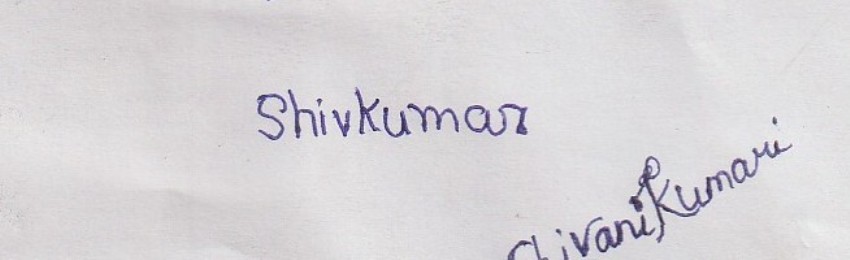 Shivkumar
Shivani Kumari